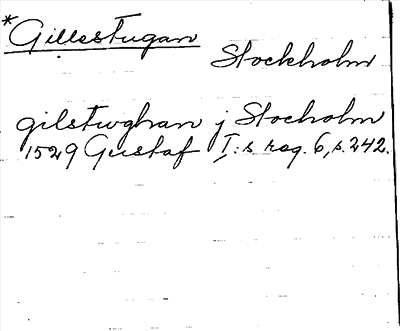 *Gillestugan
Stockholm
gilstwghan j Stocholm
1529 Gustaf I:s reg. 6, s. 242.